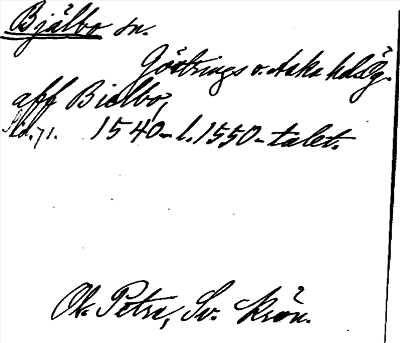 Bjälbo sn.
Göstrings o. Aska hdr Ög.
aff Bielbo,
Sid. 71. 1540- l. 1550-talet.
Ol. Petri, Sv. krön.